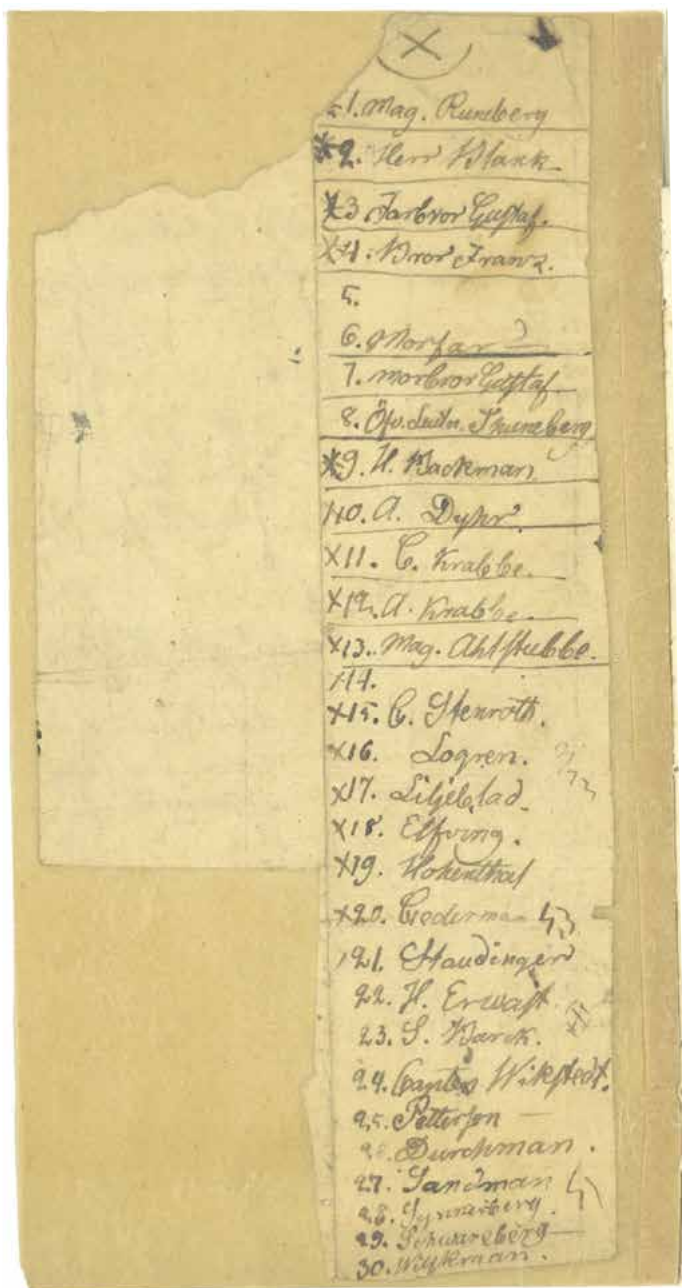 X
1. Mag. Runeberg
X2. Herr Blank
X3. Farbror Gustaf.
X4. Bror Franz.
5.
6. Morfar
7. morbror Gustaf
8. Öfv. Leutn.
X9. H. Backman
10. A. Dyhr
X11. C. Krabbe.
X12. A. Krabbe.
X13. Mag. Ahlstubbe.
14.
X15. C. Stenroth.
X16. Logren.
X17. Liljeblad
X18. Elfving.
X19. Hohenthal
X20. Cederman
21. Staudinger
22. H. Erwast
23. S. Barck.
24. Cantor Wikstedt.
25. Petterson
26. Durchman.
27. Sandman
28.
29. Schwartzberg
30. Wijkman.